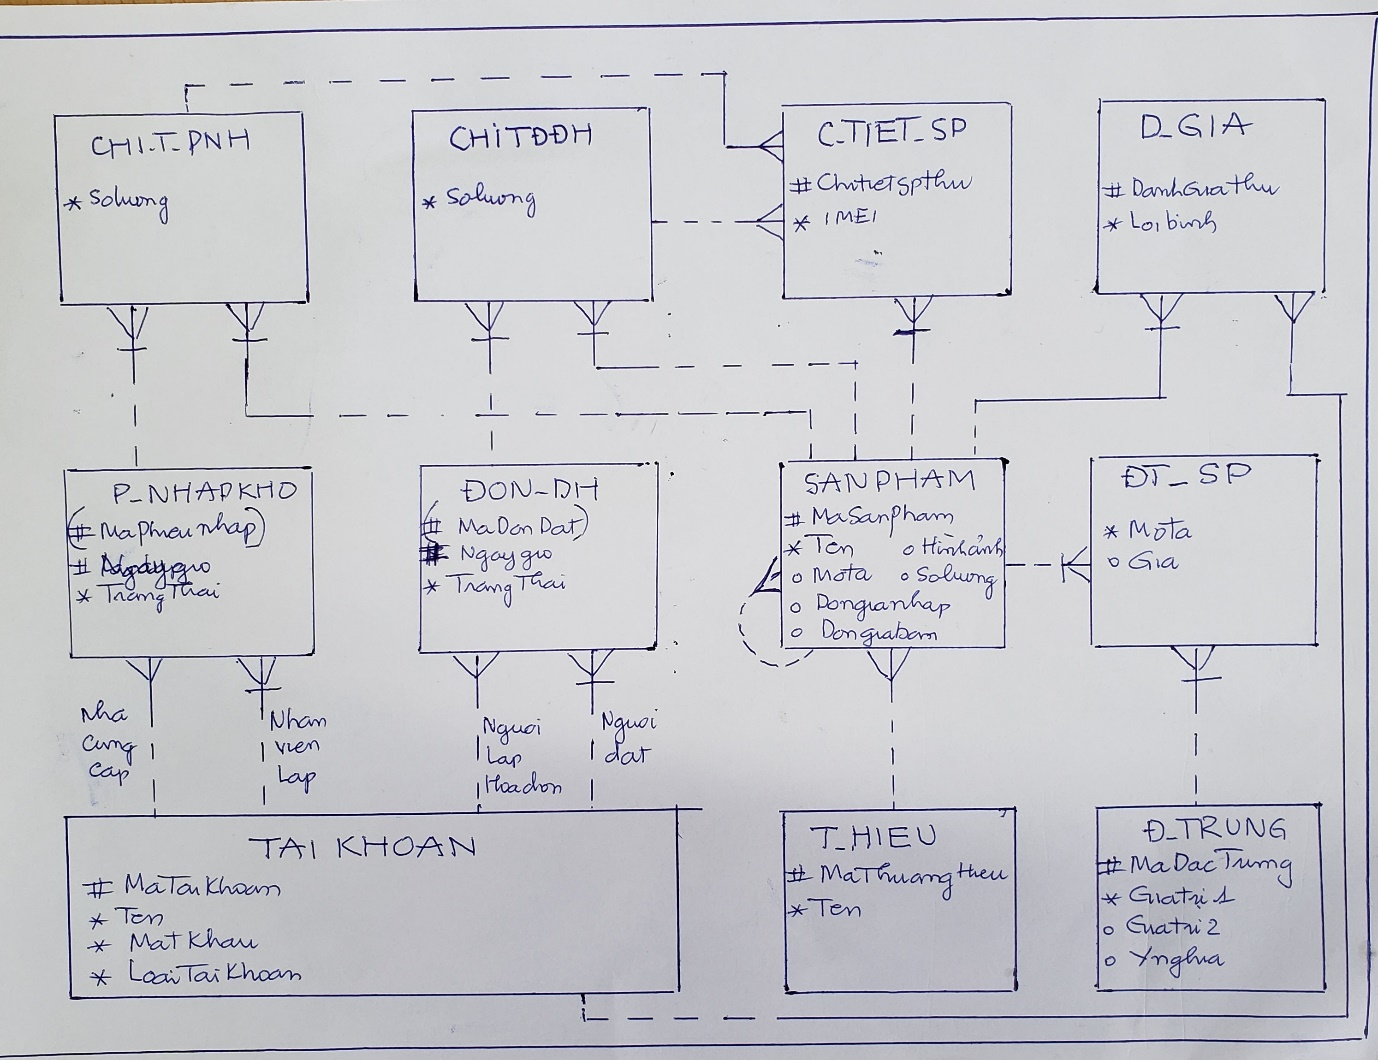 CHI_T_PNH
* Soluong
CHiTĐĐH
* Soluong
C_TIET_SP
# Chitietspthu
* IMEI
D_GIA
# DanhGiathu
* Loibinh
P_NHAPKHO
(# MaPhieunhap)
# Ngaygio
* TrangThai
ĐON_DH
(# MaDonDat)
# Ngaygio
* TrangThai
SANPHAM
# MaSanPham
* Ten o Hinhảnh
o Mota o Soluong
o Dongianhap
o Dongiaban
ĐT_SP
* Mota
o Gia
Nha
cung
cap
Nhan
vien
Lap
Nguoi
Lap
Hoadon
Nguoi
dat
TAI KHOAN
# MaTaiKhoan
* Ten
* MatKhau
* LoaiTaiKhoan
T_HIEU
# MaThuongHieu
* Ten
Đ_TRUNG
# MaDacTrung
* Giatri1
o Giatri2
o Ynghia